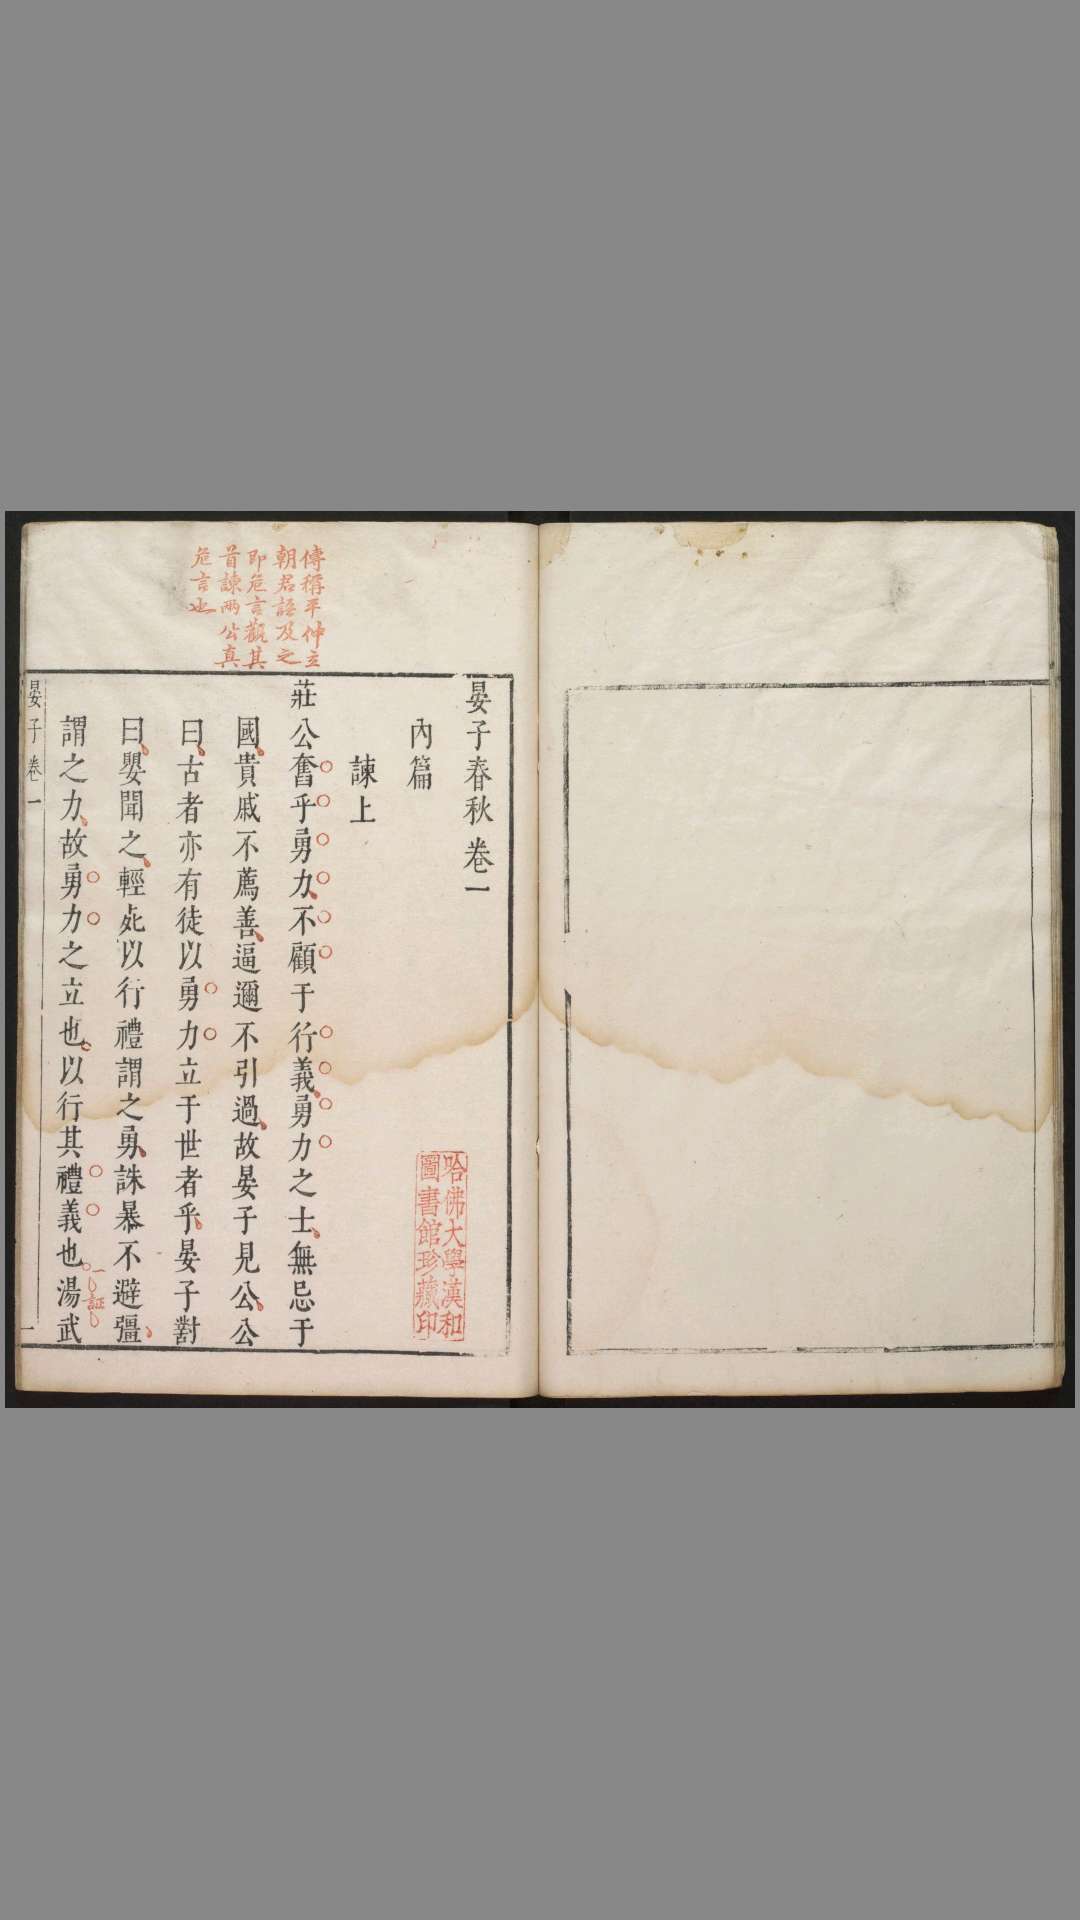 傳稱平仲立
朝君語及之
即危言觀其
首諫兩公真
危言也
晏子春秋卷一
內篇
諫上
莊公奮乎勇力不顧于行義勇力之士無忌于
國貴戚不薦善逼邇不引過故晏子見公公
曰古者亦有徒以勇力立于世者乎晏子對
曰嬰聞之輕死以行禮謂之勇誅暴不避彊
謂之力故勇力之立也以行其禮義也湯武
一証
晏子卷一
一
哈佛大學漢和
圖書館珍藏印